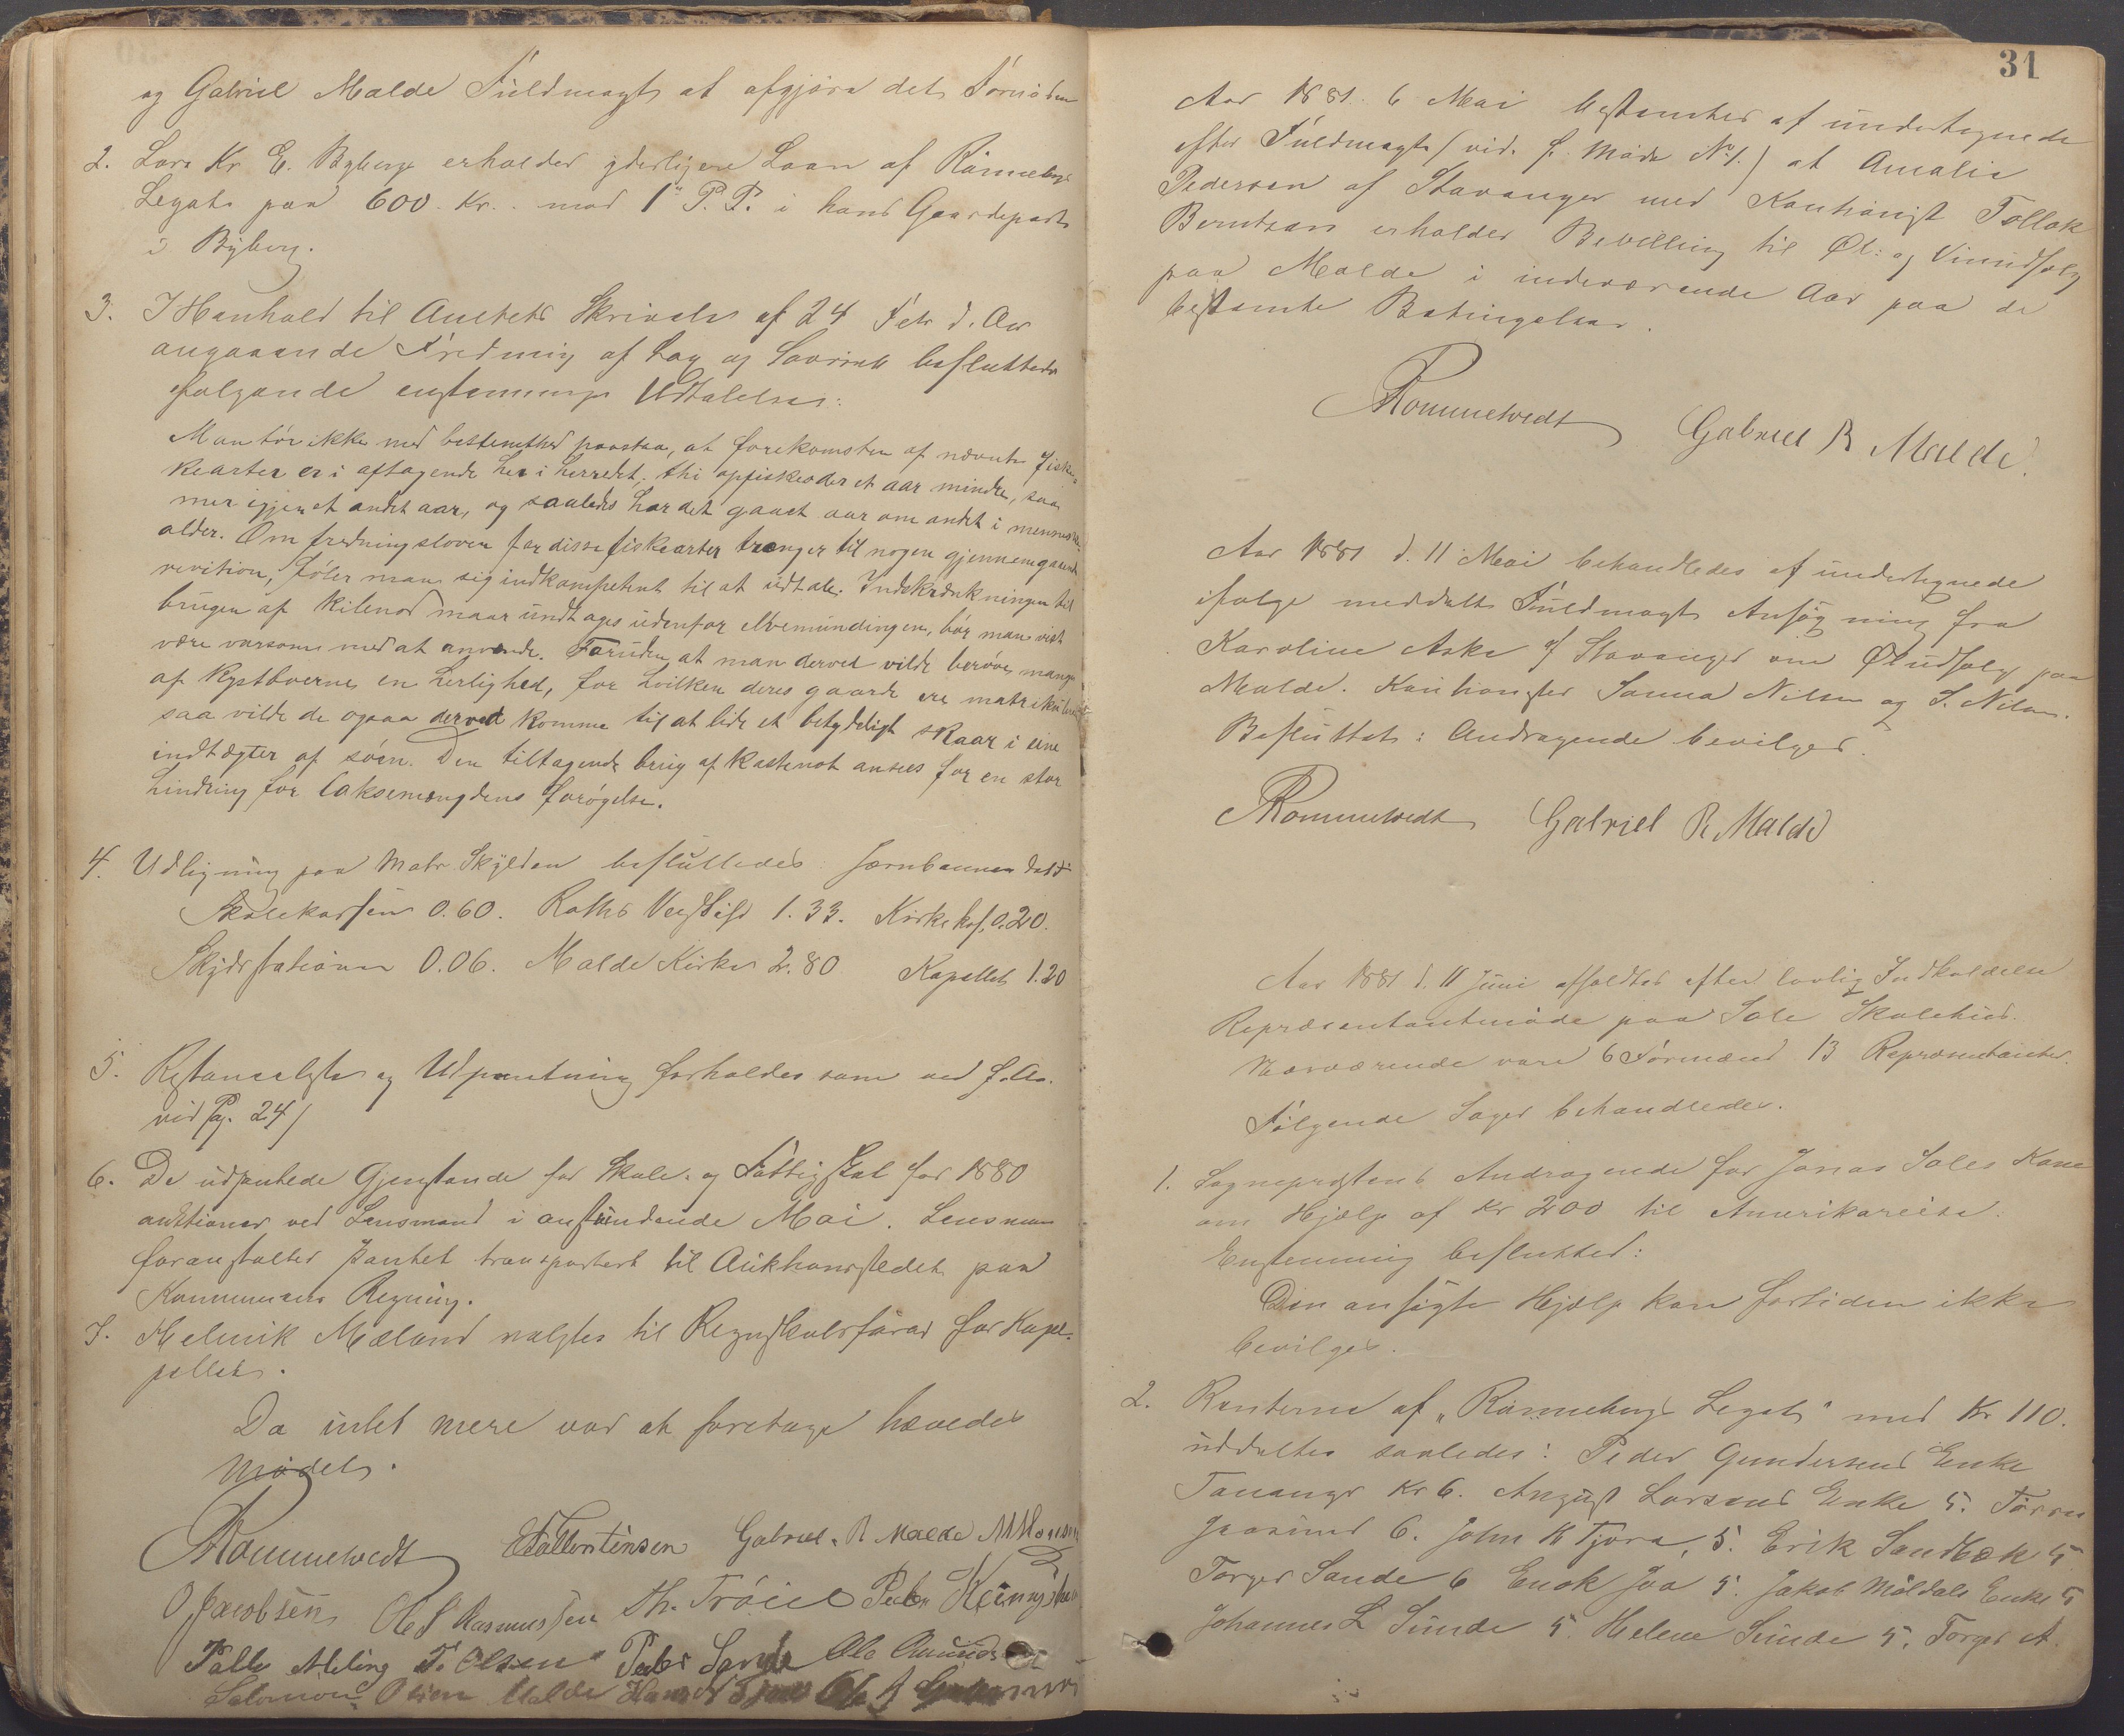 og Gabriel Malde Fuldmagt at afgjøre det Fornødne
2. Lars Kr E. Byberg erholder yderligere Laan af Rønneberg
Legat paa 600 Kr. mod 1ste P. P. i hans Gaardepart
i Byberg.
3. I Henhold til Amtets Skrivelse af 24 Febr d. Aar
angaaende Fredning af Lax og Søørret besluttedes
følgende enstemmige Udtalelse:
Man tør ikke med bestemthed paastaa, at forekomsten af nævnte fis-
kearter er i aftagende her i herredet, thi opfiskes der et aar mindre, saa
mer igjen et andet aar, og saaledes har det gaaet aar om andet i menneske-
alder. Om fredningsloven for disse fiskearter trænger til nogen gjennemgaaende
revition, føler man sig indkompetent til at udtale. Indskrænkningen til
brugen af kilenod maar undtages udenfor elvemundingen, bør man vist
være varsom med at anvende. Foruden at man derved vilde berøve mange
af kystboerne en herlighed, for hvilken deres gaarde ere matrikuleret
saa vilde de ogsaa derved komme til at lide et betydeligt skaar i sine
indtægter af søen. Den tiltagende brug af kastenot ansees for en stor
hindring for laksemængdens forøgelse.
4. Udligning paa Matr Skylden besluttedes
Skolekassen 0.60. 1.33. Kirkek. 0.20.
Skydsstationen 0.06. Malde Kirke 2.80 Kapellet 1.20
5. Restanceliste og Udpantning forholdes som ved f. Aa.
vid Pg. 24)
6. De udpantede Gjenstande for Skole- og Fattigskat for 1880
auktioneres ved Lensmand i anstundende Mai. Lensmann
foranstalter Pantet transportert til Auktionsstedet paa
Kommunens Regning.
7. Helmik Mæland valgtes til Regnskabsfører for Kapel-
pellet.
Da intet mere var at foretage hævedes
Mødet.
Rommetvedt E Tallentinsen Gabriel. R Malde M Monsen
O Jacobsen Ole S Rasmussen Th. Tröiel Peder
Palle T. Olsen Peder Sande Ole
Salomon Olsen Malde
31
Aar 1881. 6 Mai bestemtes af undertegnede
efter Fuldmagt (vid. f. Møde No 1.) at Amalie
Pedersen af Stavanger med Kautionist Tollak
Berntsen erholder Bevilling til Øl- og Vinudsalg
paa Malde i indeværende Aar paa de
bestemte Betingelser.
Rommetvedt Gabriel R Malde.
Aar 1881 d. 11 Mai behandledes af undertegnede
ifølge meddelt Fuldmagt Ansøgning fra
Karoline Aske af Stavanger om Øludsalg paa
Malde. Kautionister Sanna Nilsen og S. Nilsen.
Besluttet: Andragende bevilges.
Rommetvedt Gabriel R Malde
Aar 1881 d. 11 Juni afholdtes efter lovlig Indkaldelse
Repræsentantmøde paa Sole Skolehus.
Nærværende vare 6 Formænd 13 Repræsentanter.
Følgende Sager behandledes.
1. Sogneprestens Andragende for Jonas Soles Kone
om Hjælp af Kr 200 til Amerikareise.
Enstemmig besluttet:
Den ansøgte Hjælp kan fortiden ikke
bevilges.
2. Renterne af "Rønnebergs Legat" med Kr 110.
uddeltes saaledes: Peder Gundersens Enke
Tananger Kr 6. August Larsens Enke 5.
6. John K Tjora, 5. Erik Sandbæk 5
Torger Sande 6 Enok Joa 5. Jakob Møldals Enke 5
Johannes L Sunde 5. Helene Sunde 5. Torger A.